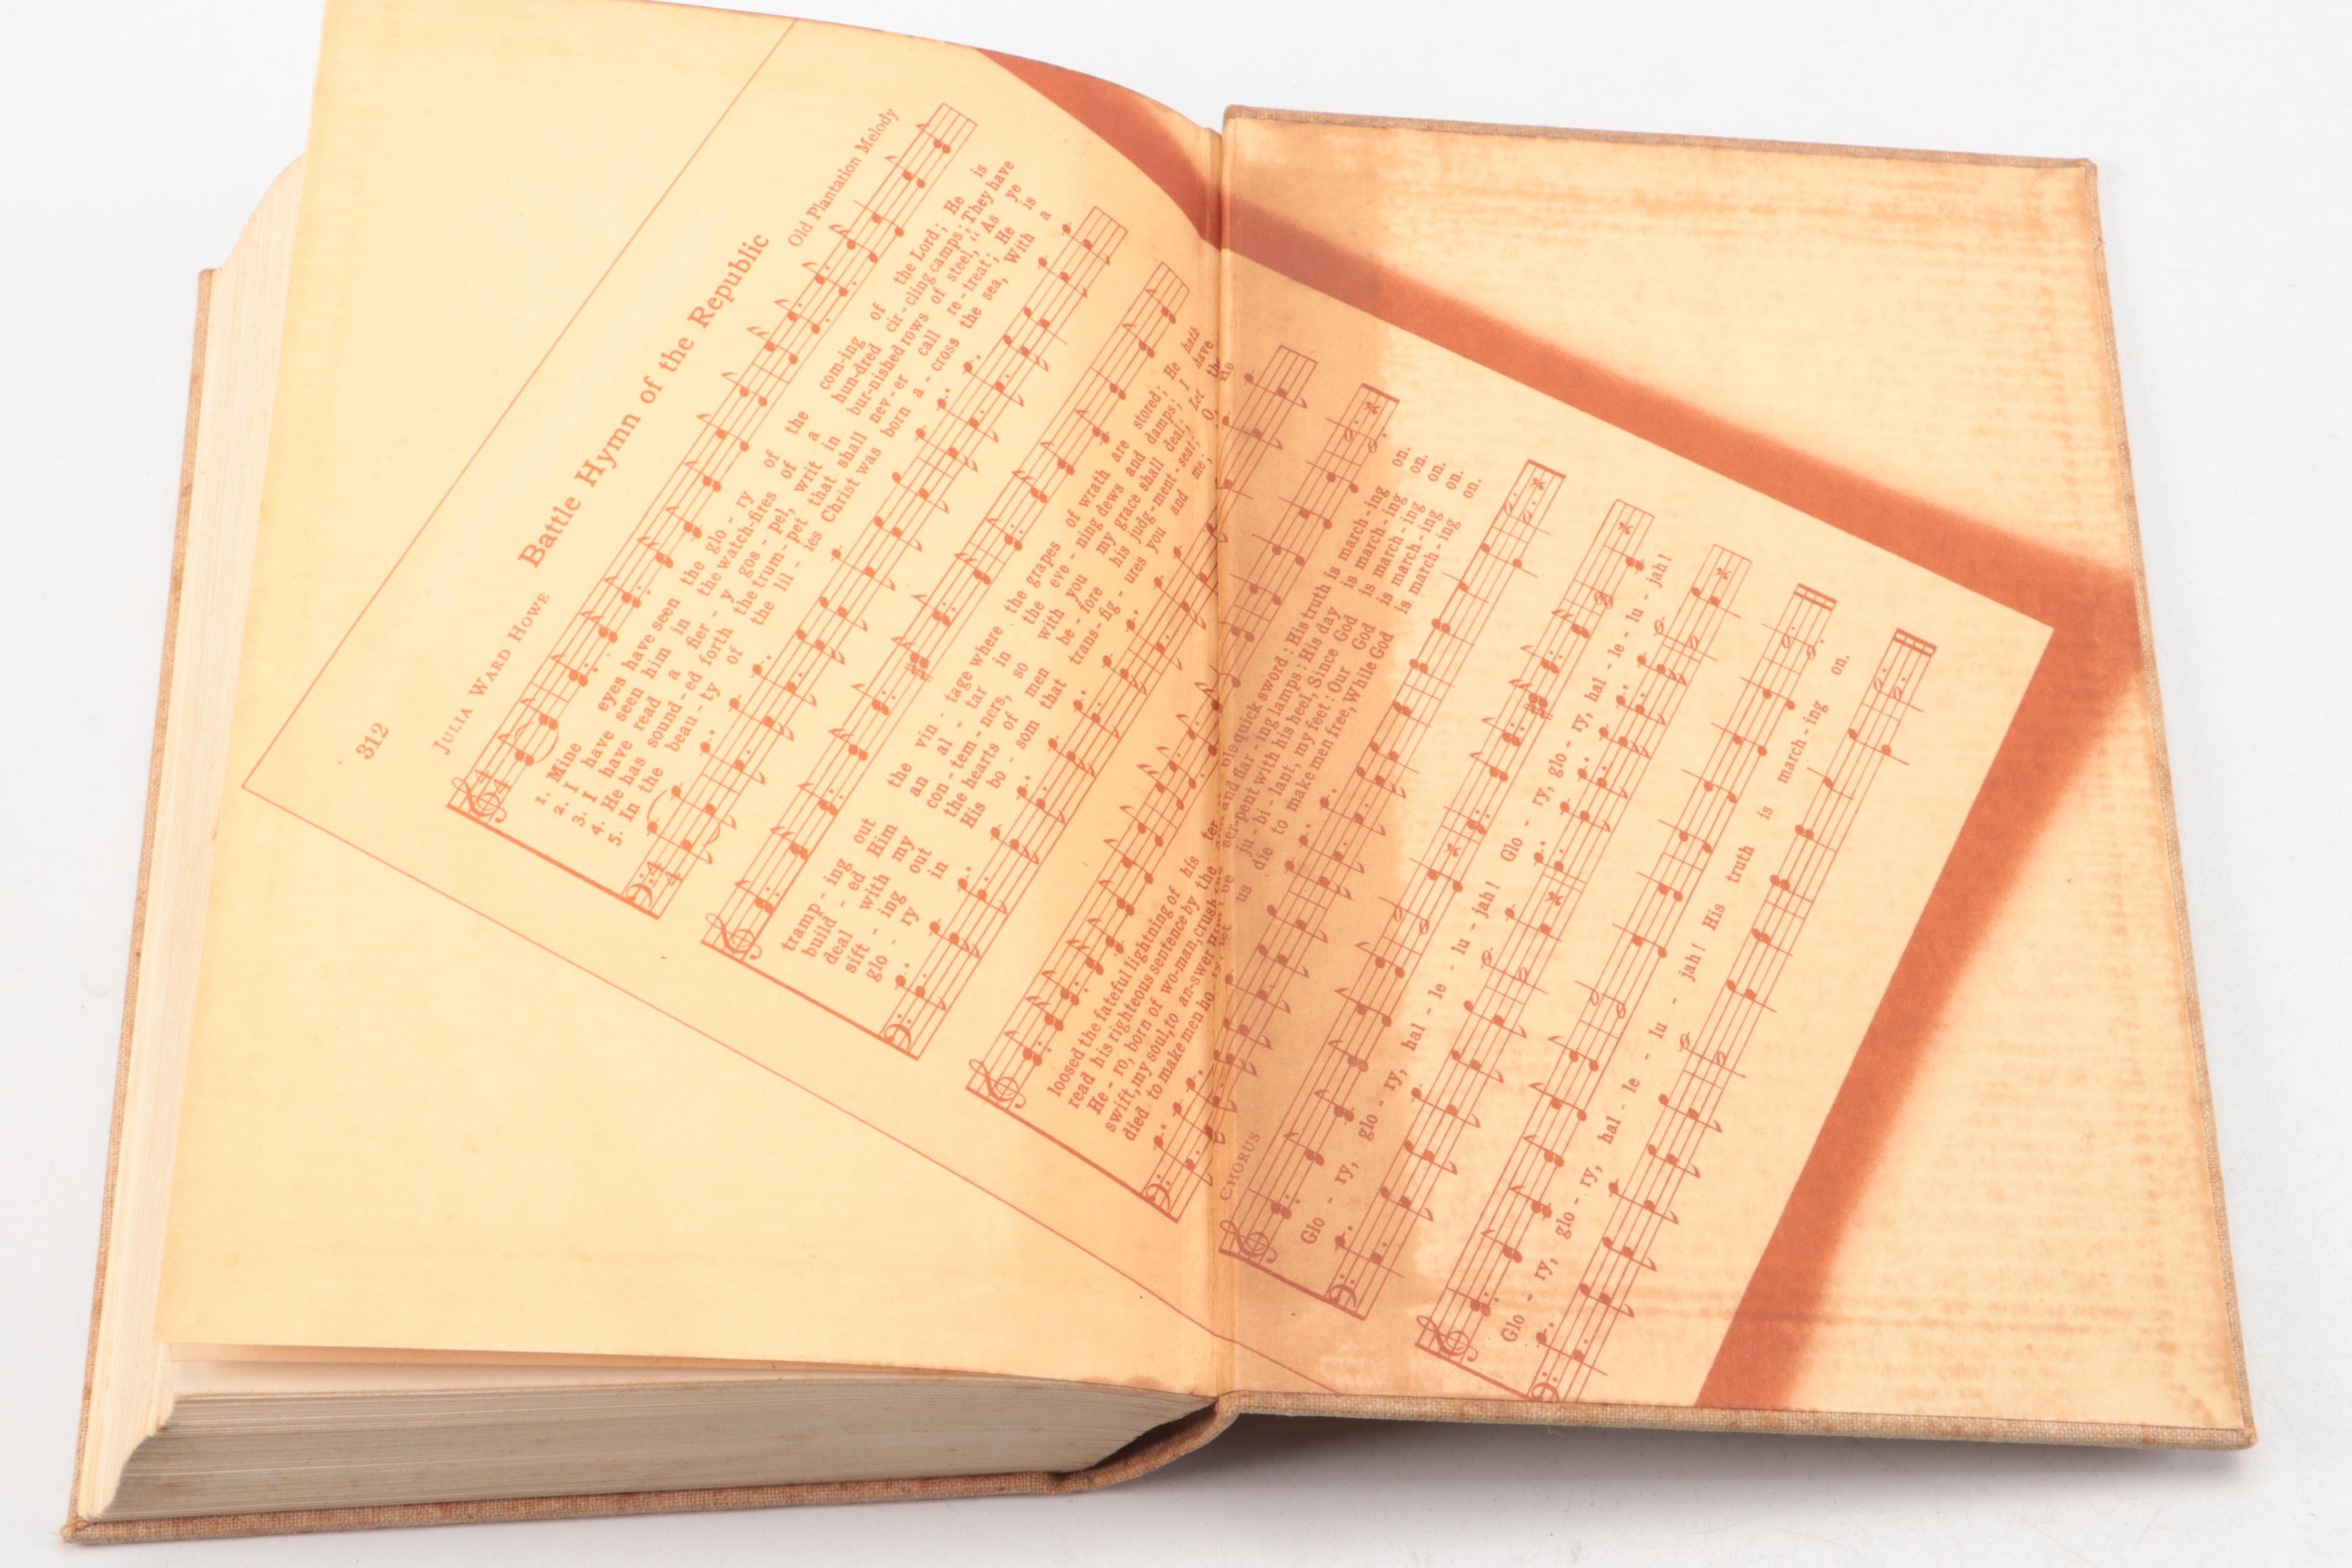 312
Battle Hymn of the Republic
JULIA WARD HOWE
Old Plantation Melody
1. Mine eyes have seen the glo - ry of the com-ing of the Lord; He is
2. I have seen him in the watch-fires of a hun-dred cir - cling camps; They have
3. I have read a fier - y gos - pel, writ in bur-nished rows of steel, "As ye
4. He has sound-ed forth the trum - pet that shall nev - er call re - treat; He is
5. In the beau - ty of the lil - ies Christ was born a - cross the sea, With a
tramp - ing out the vin - tage where the grapes of wrath are stored; He hath
build - ed Him an al - tar in the eve - ning dews and damps; I have
deal with my con - tem - ners, so with you my grace shall deal; Let the
sift - ing out the hearts of men be - fore his judg - ment - seat; O, be
glo - ry in His bo - som that trans - fig - ures you and me;
loosed the fateful lightning of his ter - ble quick sword; His truth is march - ing on.
read his righteous sentence by the and flar - ing lamps: His day is march - ing on.
He - ro, born of wo-man, crush the ser-pent with his heel, Since God is march - ing on.
swift, my soul, to an-swer Him! be ju - bi - lant, my feet: Our God is march - ing on.
died to make men ho - ly, let us die to make men free, While God is march - ing on.
CHORUS
Glo - ry, glo - ry, hal - le - lu - jah! Glo - ry, glo - ry, hal - le - lu - jah!
Glo - ry, glo - ry, hal - le - lu - jah! His truth is march - ing on.